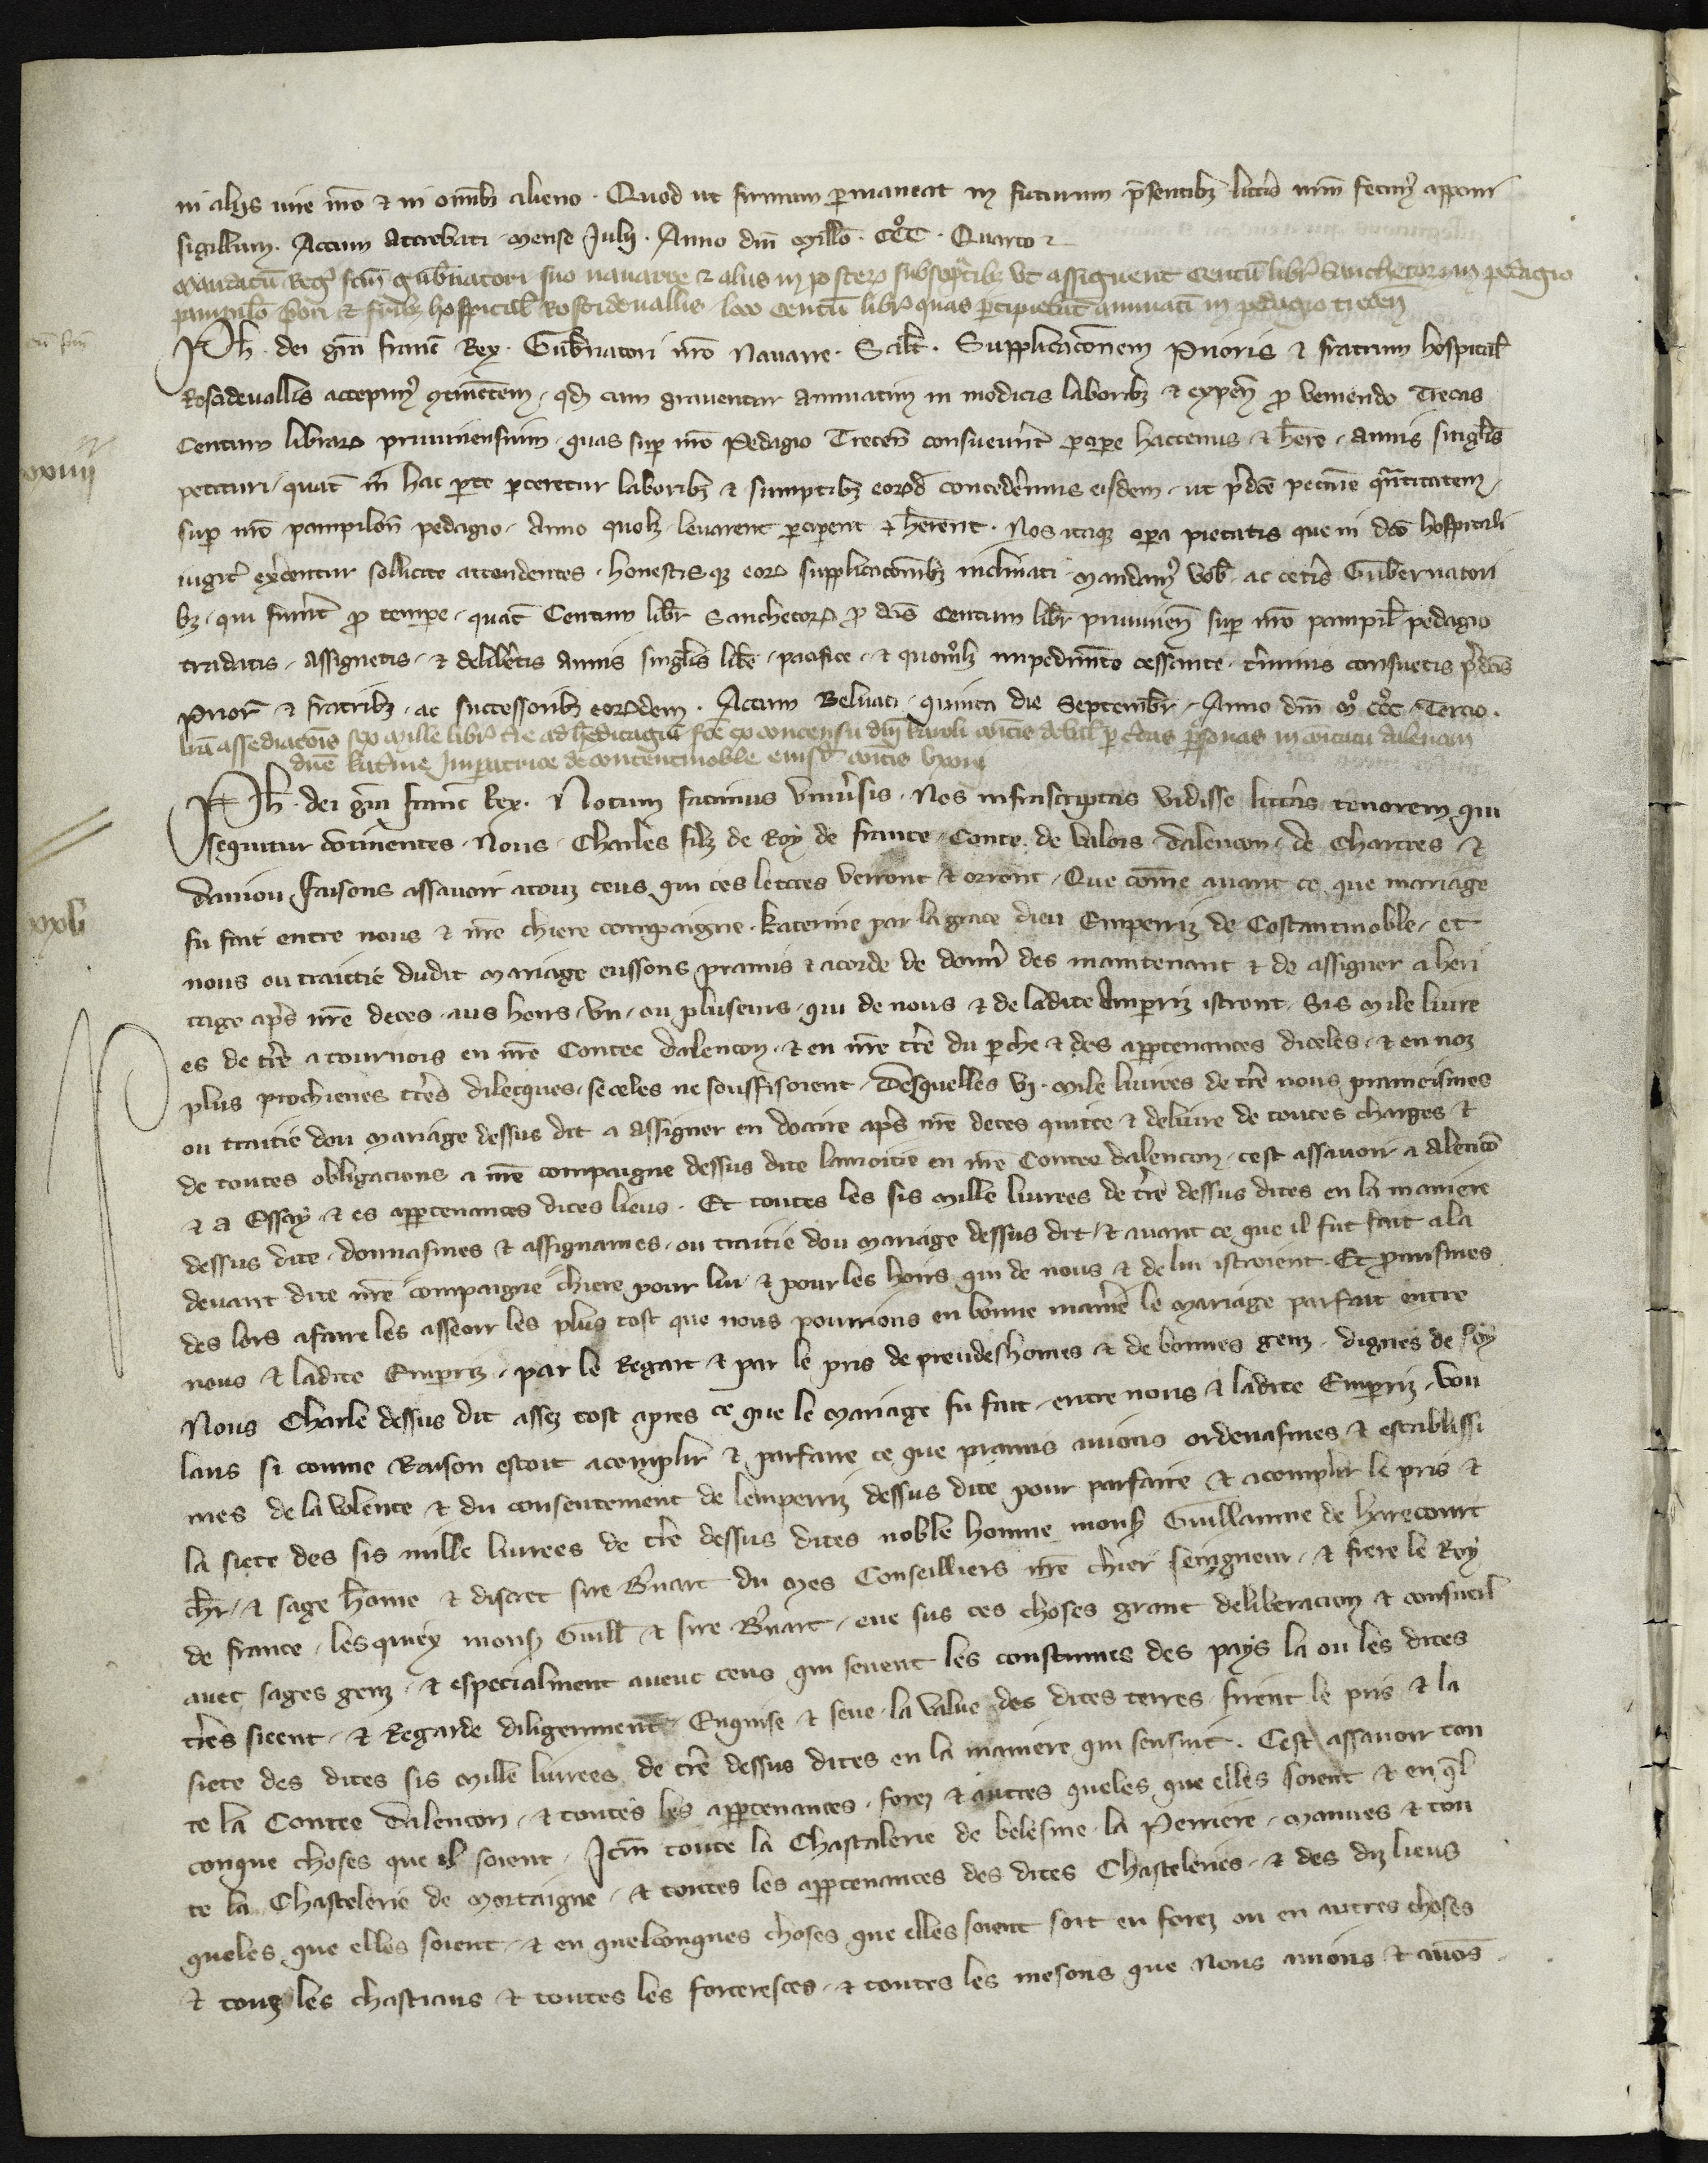 in aliis iure nr̄o ⁊ in omib3 alieno . Quod ut firmum permaneat in futurum p̄sentib3 litt̄is nr̄m fecim᷒ apponi
sigillum . Actum Attrebati . mense Julij . Anno dn̄i millo . CCC . Quarto ⁊
mandatū Reḡ fc̄m gub̄natori suo nauarre ⁊ aliis in posteꝝ ut assignent centū libr̄ sanchetoꝝ in pedagio
pampil̄o p̄ori ⁊ fr̄ib3 hospital̄ Roscideuallis loco centū libr̄ quas percipiebāt annuatī in pedagio trecen̄
Ph . dei grā franc̄ Rex . Gub̄natori nr̄o Nauarre . Salt̄ . Supplicac̄onem prioris ⁊ fratrum hospital̄
Roscideuallis accepim᷒ ꝯtinētem , qd̄ cum grauentur annuatim in modicis laborib3 ⁊ expen̄ p̄ veniendo Trecas
Centum libraꝝ pruuinensium , quas sup̄ nr̄o Pedagio Trecen̄ consueuer̄t percipe hactenus ⁊ h̄ere , annis singl̄is
petituri , quat̄ in hac parte parceretur laborib3 ⁊ sumptib3 eoꝝd̄ concedēmus eisdem , ut p̄dc̄e pecunie q̄ntitatem ,
sup̄ nr̄o pampilon̄ pedagio , Anno quol3 leuarent perciperent ⁊ h̄erent . Nos itaq3 opera pietatis que in dc̄o hospitali
iugit̄ ex̄centur sollicite attendentes , honestisq3 eoꝝ supplicac̄onib3 inclinati mandam᷒ vob̄ , ac cet̄is Gub̄ernatori
b3 , qui fuer̄t p̄ tempore , quat̄ Centum libr̄ Sanchetoꝝ p̄ dc̄is Centum libr̄ pruuinen̄ sup̄ nr̄o pampil̄ pedagio
tradatis , assignetis , ⁊ delib̄etis annis singl̄is libe , pacifice , ⁊ quol3 impedim̄to cessante , t̄minis consuetis p̄dc̄is
priori ⁊ fratrib3 , ac successorib3 eoꝝdem . Actum Beluaci , quinta die Septembr̄ , Anno dn̄i M° CCC° Tercio .
lr̄a assediac̄onis sex mille libr̄ t̄re ad h̄editagiū fc̄e ex concensu dn̄i karoli comitis per c̄tas p̄sonas in comitatu dalencon
dn̄e kat̄ine Jmperatrice de contentinoble eiusd̄ comitis vxori
Ph . dei grā franc̄ Rex . Notum facimus Vniu̅sis . Nos infrascriptas vidisse litt̄as tenorem qui
sequitur cōtinentes . Nous Charles filz de Roy de france , Conte de Valois dalencon , de Chartres ⁊
daniou , faisons assauoir atouz ceus qui ces lettres verront ⁊ orront , Que cōme auant ce que mariage
fu fait entre nous ⁊ nr̄e chiere compaigne , Katerine par la grace dieu Emperriz de Costantinoble , et
nous ou traittie dudit mariage eussons promis ⁊ acorde de donn̄ des maintenant ⁊ de assigner a heri
tage ap̄s nr̄e deces aus hoirs , vn , ou pluseurs , qui de nous ⁊ de ladite Amperriz istront , Sis Mile liure
es de t̄re a tournois en nr̄e Contee dalencon , ⁊ en nr̄e t̄re du perche ⁊ des appartenances diceles , ⁊ en noz
plus prochienes t̄res dilecques , se celes ne souffisoient , Desquelles vj . Mile liurees de t̄re nous prameismes
ou traitie dou mariage dessus dit a assigner en doaire ap̄s nr̄e deces quitte ⁊ deliure de toutes charges ⁊
de toutes obligacions a nr̄e compaigne dessus dite lamoitie en nr̄e Contee dalencon , cest assauoir a Alencō
⁊ a Essay ⁊ es appartenances dices lieus . Et toutes les sis mille liurees de t̄re dessus dites en la maniere
dessus dite , donnasmes ⁊ assignames , ou traitie dou mariage dessus dit , ⁊ auant ce que il fut fait a la
deuant dite nr̄e compaigne chiere pour lui ⁊ pour les hoirs qui de nous ⁊ de lui istroient . Et promismes
des lors afaire les asseoir les plus tost que nous pourrions en bonne manie̅ le mariage parfait entre
nous ⁊ ladite Emperriz , par le Regart ⁊ par le pris de preudeshomes ⁊ de bonnes genz , dignes de foy
Nous Charle dessus dit assez tost apres ce que le mariage fu fait , entre nous ⁊ ladite Emperriz , vou
lans si comme Raison estoit acomplir ⁊ parfaire ce que pramis auions ordenasmes ⁊ establissi
mes de la volente ⁊ du consentement de lemperriz dessus dite pour parfaire ⁊ acomplir le pris ⁊
la siete des sis mille liurees de t̄re dessus dites noble homme mons̄ Guillaume de harecourt
ch̄r , ⁊ sage home ⁊ discret sire B̄nart du Mes Conseilliers nr̄e chier seingneur , ⁊ frere le Roy
de france , lesquiex mons̄ Guill̄ ⁊ sire B̄nart , eue sus ces choses grant deliberacion ⁊ conseil
auec sages genz , ⁊ especialment auenc ceus qui seuent les coustumes des pays la ou les dites
t̄res sieent , ⁊ Regarde diligenment Enquise ⁊ seue , la value des dites terres , firent le pris ⁊ la
siete des dites sis mille liurees de t̄re dessus dites en la maniere qui sensuit . Cest assauoir tou
te la Contee dalencon , ⁊ toutes les appartenances , forez ⁊ autres queles que elles soient ⁊ en q̄l
conque choses que il soient . Jtem̄ toute la Chastelerie de belesme , la Perriere , Manues ⁊ tou
te la Chastelerie de Mortaigne , ⁊ toutes les appartenances des dites Chasteleries , ⁊ des diz lieus
queles que elles soient , ⁊ en quelconques choses que elles soient soit en forez ou en autres choses
⁊ touz les chastiaus ⁊ toutes les forteresces , ⁊ toutes les mesons que Nous auions ⁊ auōs